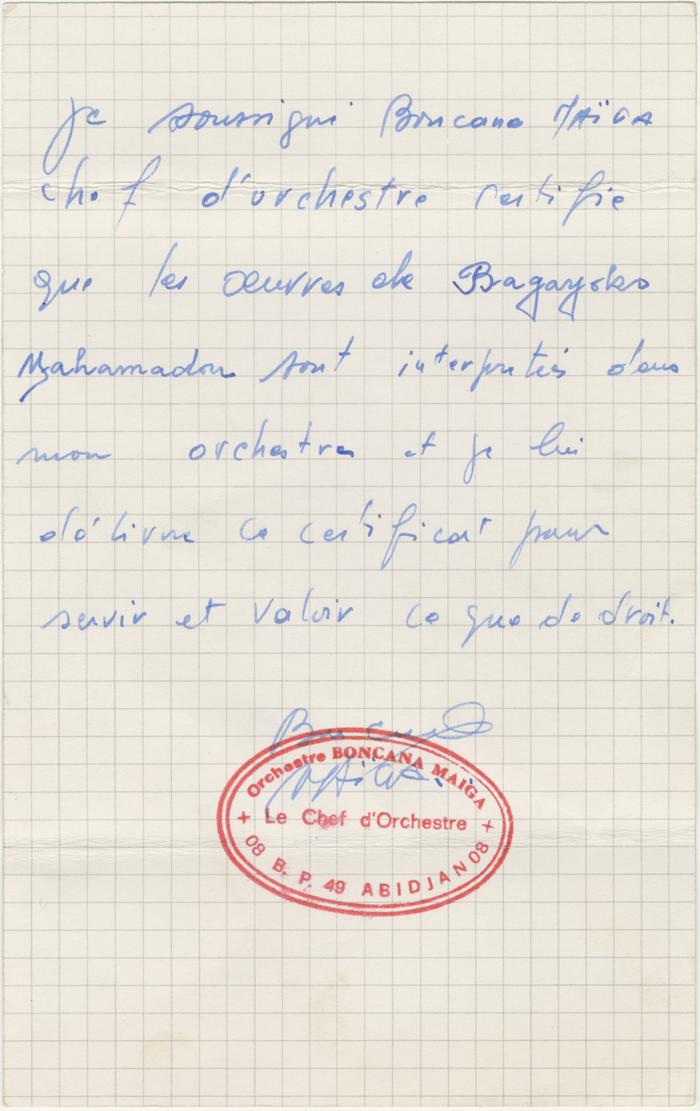 Je soussigné Boncana MAÏGA
chef d'orchestre certifie
que les œuvres de Bagayoko
Mahamadou sont interprétés dans
mon orchestre et je lui
délivre ce certificat pour
servir et valoir ce que de droit.
Boncana
Maïga
Orchestre BONCANA MAÏGA
+ Le Chef d'Orchestre +
08 B. P. 49 ABIDJAN 08